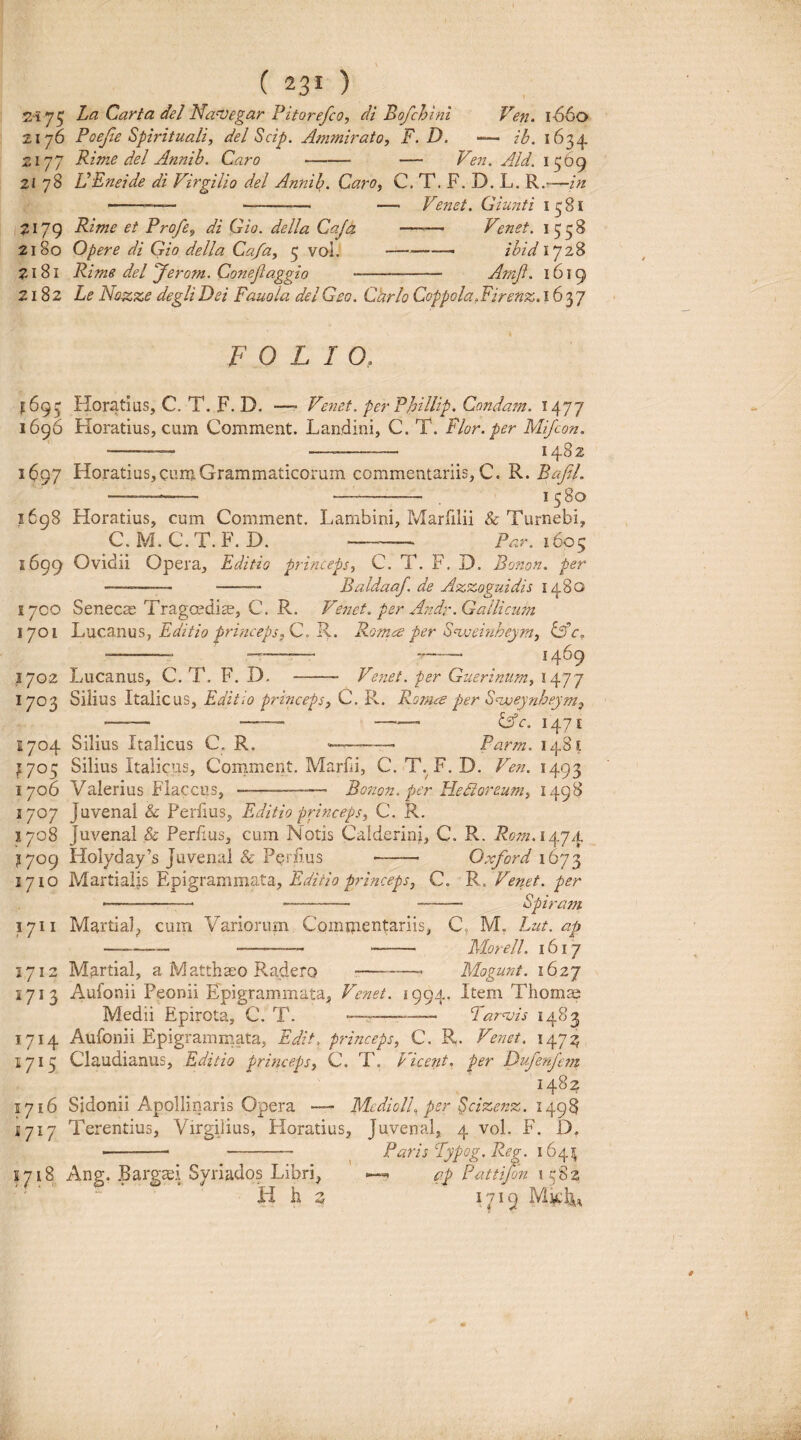 ( 231 )
2175 La Carta del Navegar Pitoresco, di Boschini Ven. 1660
2176 Poesie Spirituali, del Scip. Ammirato, F. D. — ib. 1634
2177 Rime del Annib. Caro —— — Ven. Ald. 1569
2178 L'Eneide di Virgilio del Annib. Caro, C. T. F. D. L. R.—in
—— —— — Venet. Giunti 1581
2179 Rime et Prose, di Gio. della Casa —— Venet. 1558
2180 Opere di Gio della Casa, 5 vol. —— ibid 1728
2181 Rime del Jerom. Conestaggio —— Amst. 1619
2182 Le Nozze degli Dei Fauola del Geo. Carlo Coppola, Firenz. 1637
FOLIO.
1695 Horatius, C. T. F. D. — Venet. per Phillip. Condam. 1477
1696 Horatius, cum Comment. Landini, C. T. Flor. per Miscon.
—— —— 1482
1697 Horatius, cum Grammaticorum commentariis, C. R. Basil.
—— —— 1580
1698 Horatius, cum Comment. Lambini, Marsilii & Turnebi,
C. M. C. T. F. D. —— Par. 1605
1699 Ovidii Opera, Editio princeps, C. T. F. D. Bonon. per
—— —— Baldaas. de Azzoguidis 1480
1700 Senecæ Tragœdiæ, C. R. Venet. per Andr. Gallicum
1701 Lucanus, Editio princeps, C. R. Romæ per Sweinheym, &c.
—— —— —— 1469
1702 Lucanus, C. T. F. D. —— Venet. per Guerinum, 1477
1703 Silius Italicus, Editio princeps, C. R. Romæ per Sweynheym,
—— —— —— &c. 1471
1704 Silius Italicus C. R. —— Parm. 1481
1705 Silius Italicus, Comment. Marsii, C. T. F. D. Ven. 1493
1706 Valerius Flaccus, —— Bonon. per Hectoreum, 1498
1707 Juvenal & Persius, Editio princeps, C. R.
1708 Juvenal & Persius, cum Notis Calderini, C. R. Rom. 1474
1709 Holyday's Juvenal & Persius —— Oxford 1673
1710 Martialis Epigrammata, Editio princeps, C. R. Venet. per
—— —— —— Spiram
1711 Martial, cum Variorum Commentariis, C. M. Lut. ap
—— —— —— Morell. 1617
1712 Martial, a Matthæo Radero —— Mogunt. 1627
1713 Ausonii Peonii Epigrammata, Venet. 1994. Item Thomæ
Medii Epirota, C. T. —— Tarvis 1483
1714 Ausonii Epigrammata, Edit. princeps, C. R. Venet. 1472
1715 Claudianus, Editio princeps, C. T. Vicent. per Dusensem
1482
1716 Sidonii Apollinaris Opera — Medioll. per Scizenz. 1498
1717 Terentius, Virgilius, Horatius, Juvenal, 4 vol. F. D.
—— —— Paris Typog. Reg. 1641
1718 Ang. Bargæi Syriados Libri, — ap Pattison 1582
H h 2 1719 Mich.